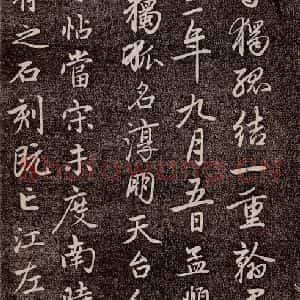 獨孤結一重翰
年九月五日孟頫
獨孤名淳朋天台
帖當宋未度南時
有之石刻既亡江左